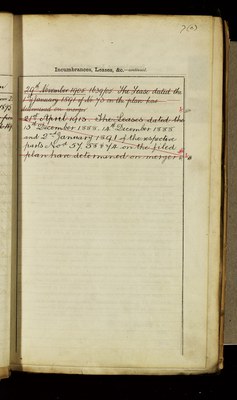 7(a)
Incumbrances, Leases, &c.—continued.
29th November 1905 The Lease dated the
1st January 1891 of No 73 on the plan has
determined on merger
21st April 1913. The Leases dated the
13th December 1888. 14th December 1888
and 2nd January 1891 of the respective
parts Nos 57, 58 & 74 on the filed
plan have determined on merger